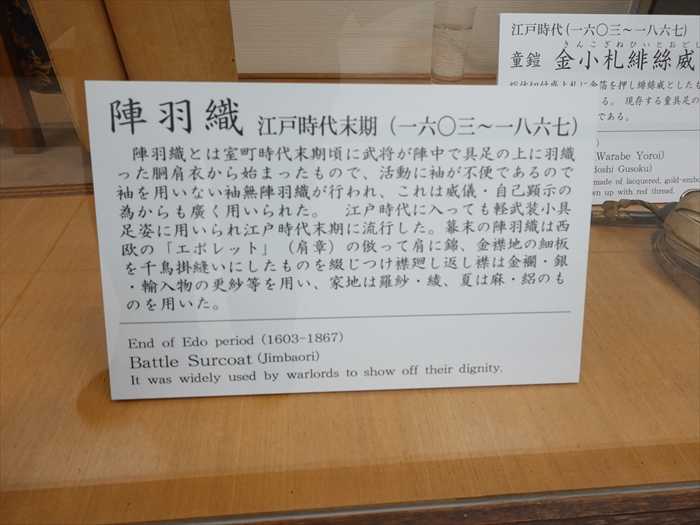 陣羽織 江戸時代末期（一六〇三～一八六七）
陣羽織とは室町時代末期頃に武将が陣中で具足の上に羽織
った胴肩衣から始まったもので、活動に袖が不便であるので
袖を用いない袖無陣羽織が行われ、これは威儀・自己顕示の
為からも廣く用いられた。　江戸時代に入っても軽武装小具
足姿に用いられ江戸時代末期に流行した。幕末の陣羽織は西
欧の「エポレット」（肩章）の倣って肩に錦、金襴地の細板
を千鳥掛縫いにしたものを綴じつけ襟廻し返し襟は金襴・銀
・輸入物の更紗等を用い、家地は羅紗・綾、夏は麻・絽のも
のを用いた。
End of Edo period (1603-1867)
Battle Surcoat (Jimbaori)
It was widely used by warlords to show off their dignity.
江戸時代（一六〇三～一八六七）
きんこざねひいとおどし
童鎧 金小札緋絲威
る。現存する童具足の
である。
Warabe Yoroi)
Gusoku)
made of lacquered, gold-embo
up with red thread.